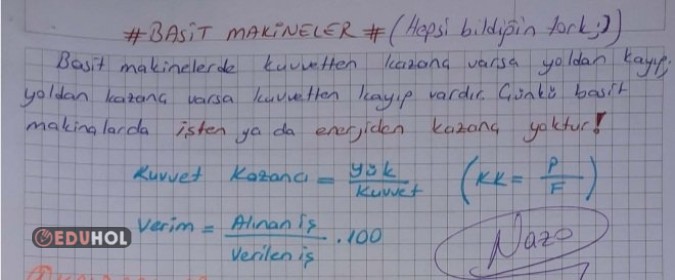 #BASİT MAKİNELER #(Hepsi bildiğin tork ;))
Basit makinelerde kuvvetten kazanç varsa yoldan kayıp,
yoldan kazanç varsa kuvvetten kayıp vardır. Çünkü basit
makinalarda işten ya da enerjiden kazanç yoktur!
Kuvvet Kazancı = Yük / Kuvvet (KK = P / F)
Verim = Alınan iş / Verilen iş . 100
EDUHOL
Nazo